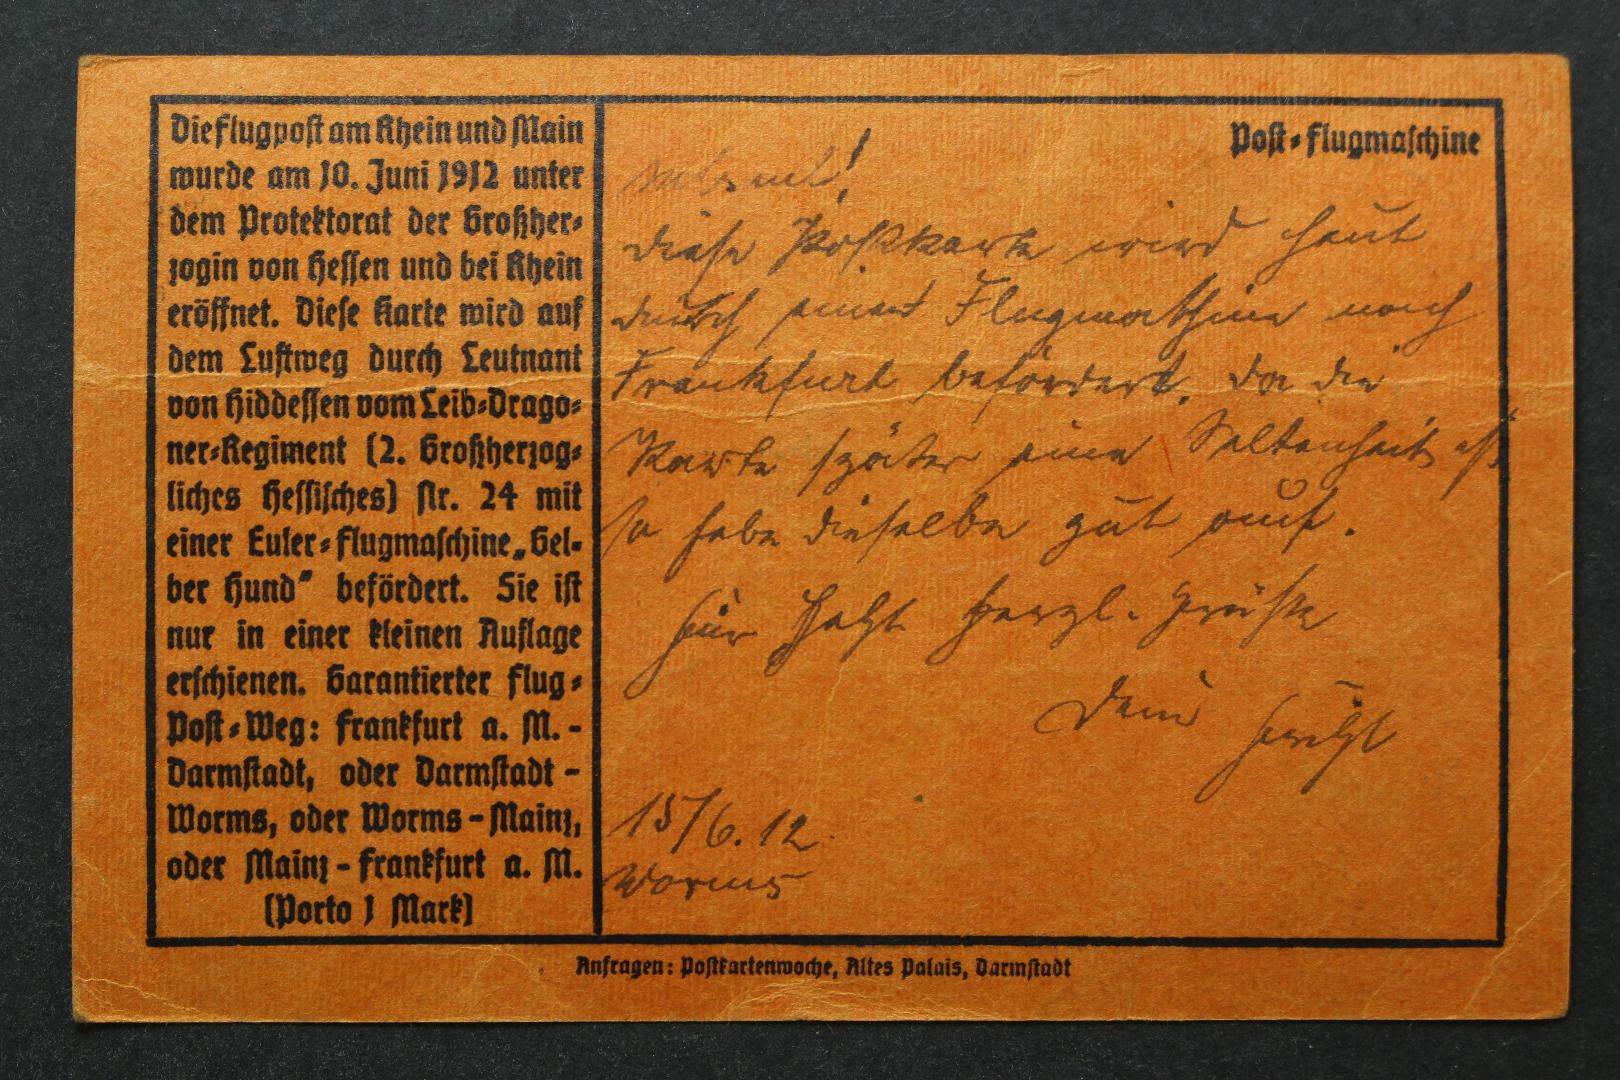 Die Flugpost am Rhein und Main
wurde am 10. Juni 1912 unter
dem Protektorat der Großher-
zogin von Hessen und bei Rhein
eröffnet. Diese Karte wird auf
dem Luftweg durch Leutnant
von Hiddessen vom Leib-Drago-
ner-Regiment (2. Großherzog-
liches Hessisches) Nr. 24 mit
einer Euler-Flugmaschine „Gel-
ber Hund" befördert. Sie ist
nur in einer kleinen Auflage
erschienen. Garantierter Flug-
Post-Weg: Frankfurt a. M. -
Darmstadt, oder Darmstadt -
Worms, oder Worms - Mainz,
oder Mainz - Frankfurt a. M.
(Porto 1 Mark)
Post-Flugmaschine
Diese Postkarte wird heut
durch einer nach
Frankfurt befördert. Da die
Karte später eine Seltenheit ist
so hebe dieselbe gut auf.
Für Jetzt herzl. Grüße
Dein
15/6.12
Worms
Anfragen: Postkartenwoche, Altes Palais, Darmstadt